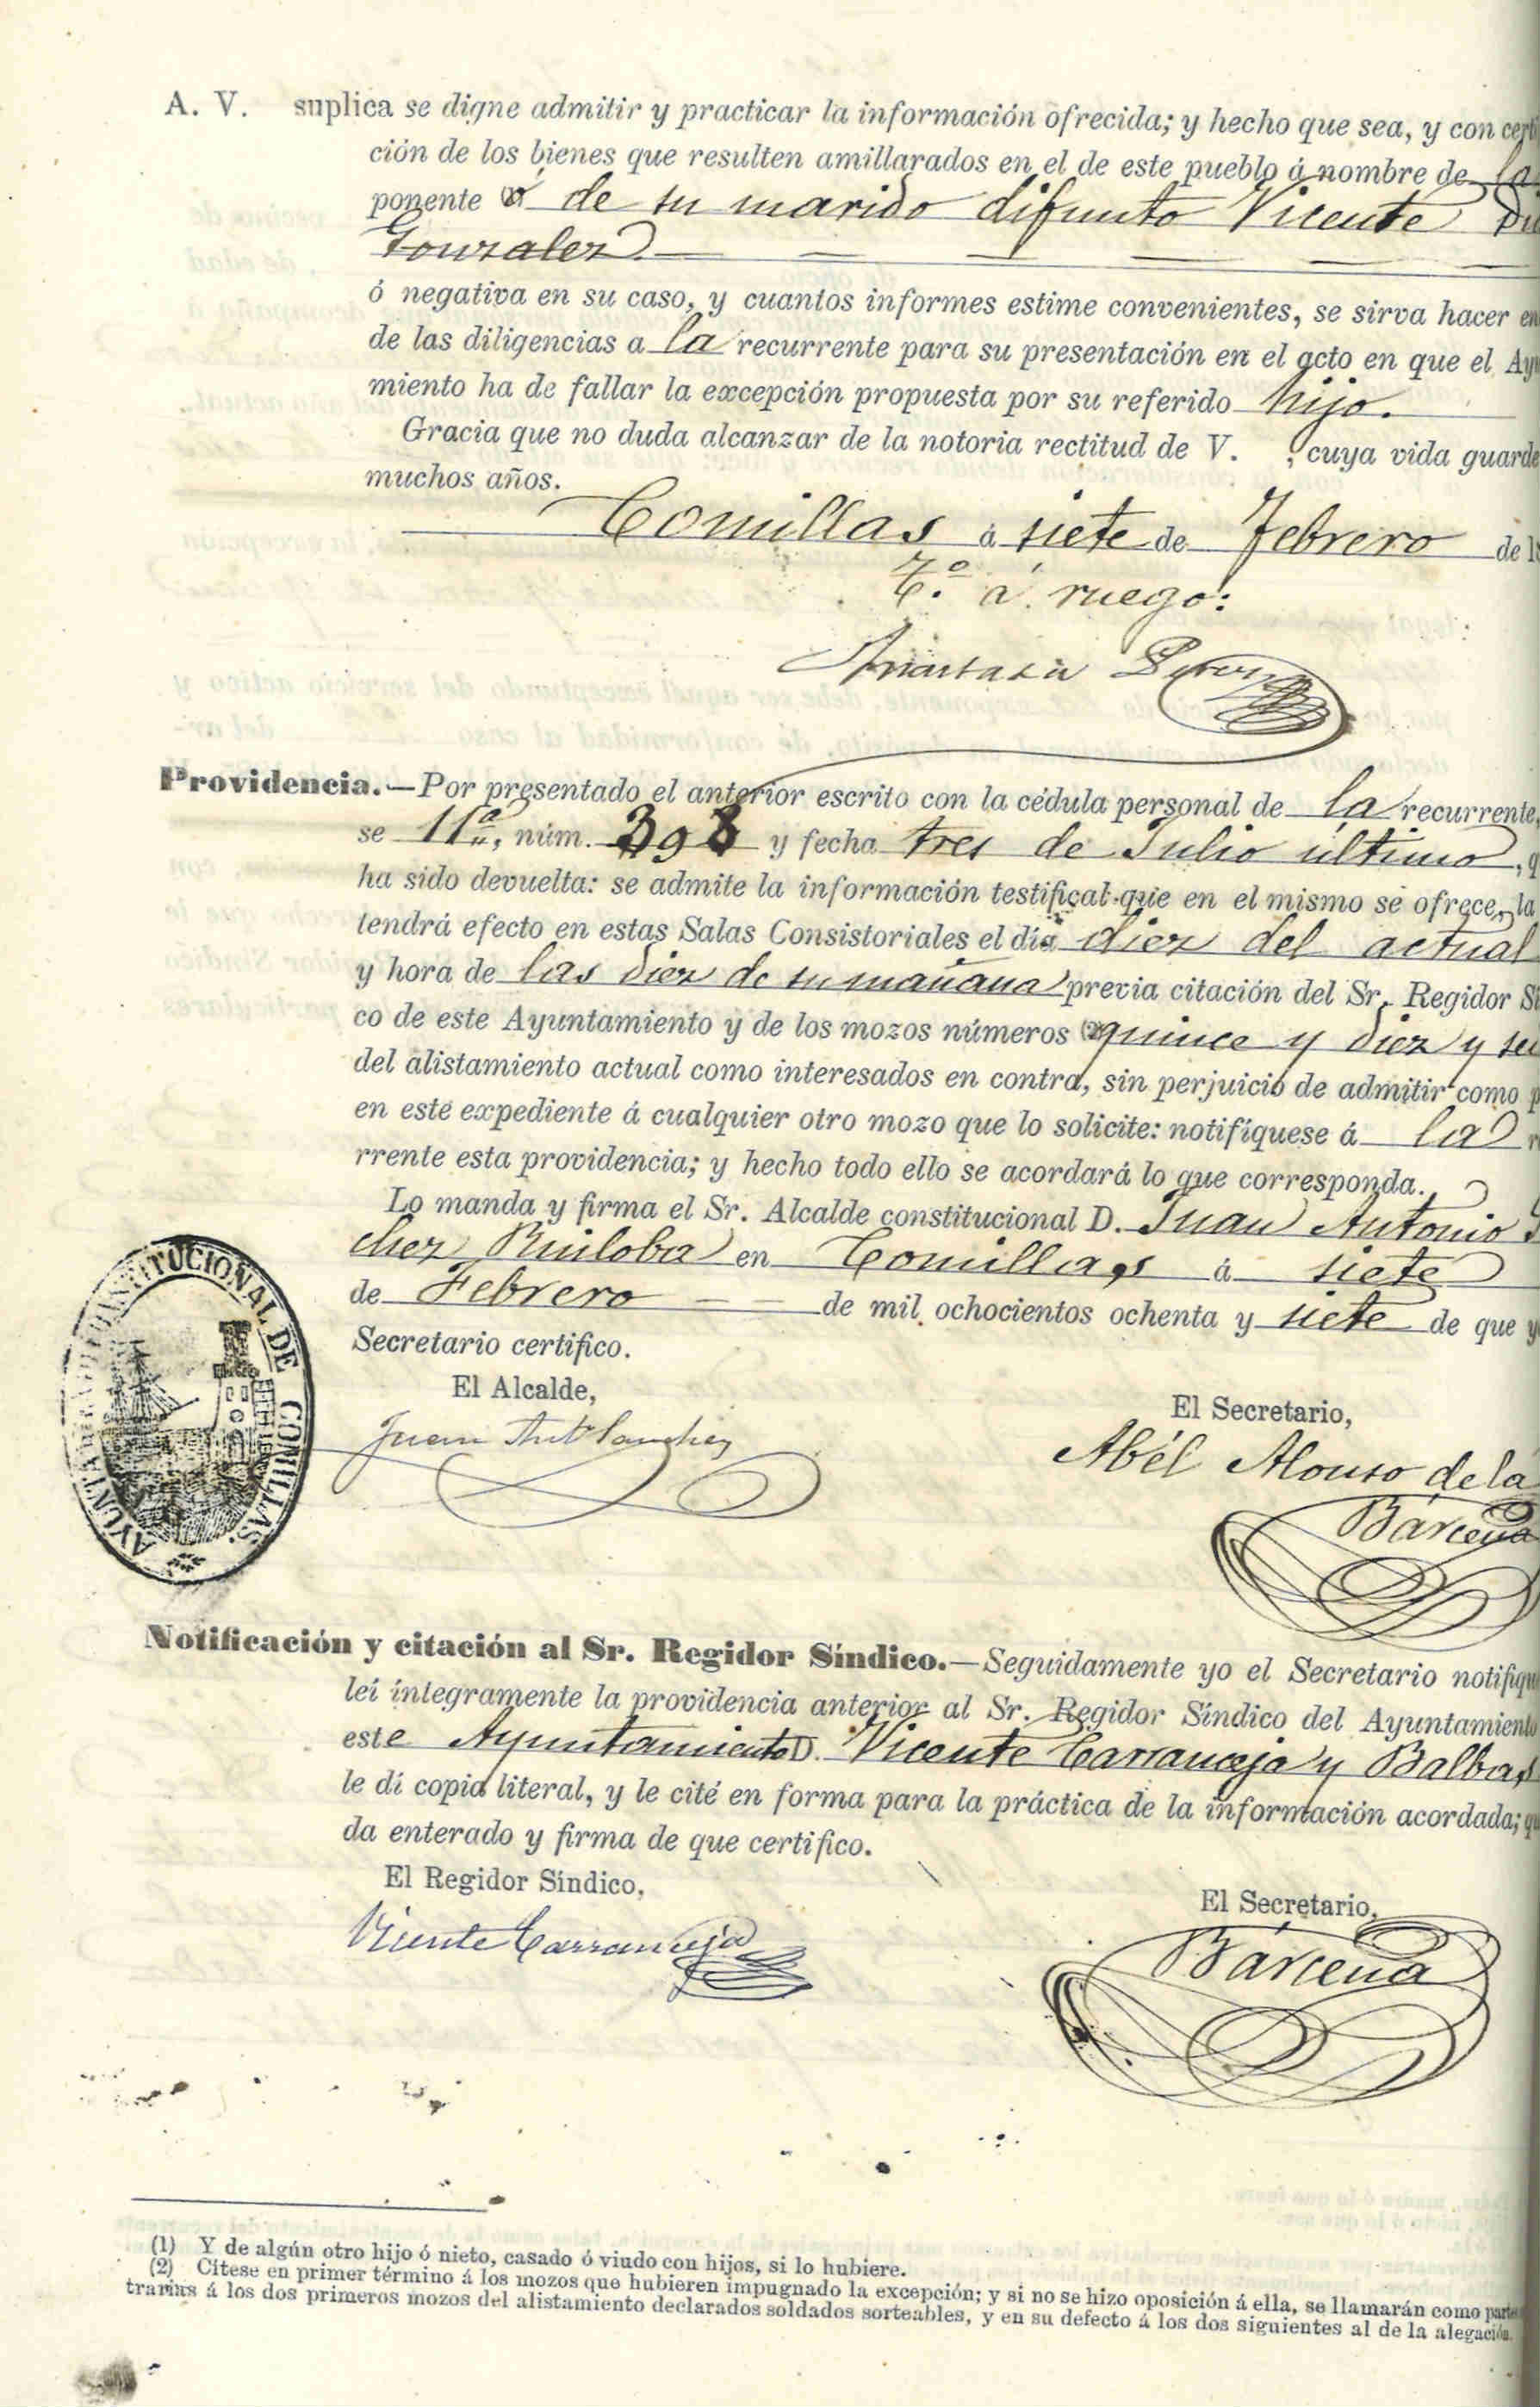 A. V. suplica se digne admitir y practicar la información ofrecida; y hecho que sea, y con certi
ción de los bienes que resulten amillarados en el de este pueblo á nombre de la
ponente (1) de su marido difunto Vicente
Gonzalez.
ó negativa en su caso, y cuantos informes estime convenientes, se sirva hacer en
de las diligencias a la recurrente para su presentación en el acto en que el Ayu
miento ha de fallar la excepción propuesta por su referido hijo.
Gracia que no duda alcanzar de la notoria rectitud de V. , cuya vida guarde
muchos años.
Comillas á siete de Febrero de 18
T.º á ruego:
Perez
Providencia.—Por presentado el anterior escrito con la cédula personal de la recurrente,
se 11ª, núm. 398 y fecha tres de Julio último, q
ha sido devuelta: se admite la información testifical que en el mismo se ofrece, la
tendrá efecto en estas Salas Consistoriales el día diez del actual
y hora de las diez de su mañana previa citación del Sr. Regidor Sí
co de este Ayuntamiento y de los mozos números (2) quince y diez y sei
del alistamiento actual como interesados en contra, sin perjuicio de admitir como p
en este expediente á cualquier otro mozo que lo solicite: notifíquese á la r
rrente esta providencia; y hecho todo ello se acordará lo que corresponda.
Lo manda y firma el Sr. Alcalde constitucional D. Juan Antonio S
chez Ruiloba en Comillas á siete
de Febrero — — de mil ochocientos ochenta y siete de que y
Secretario certifico.
AYUNTAMIENTO CONSTITUCIONAL DE COMILLAS.
El Alcalde,
Juan Antº Sanchez
El Secretario,
Abél Alonso de la
Bárcena
Notificación y citación al Sr. Regidor Síndico.—Seguidamente yo el Secretario notifiqu
leí íntegramente la providencia anterior al Sr. Regidor Síndico del Ayuntamiento
este Ayuntamiento D. Vicente Carranceja y Balbas
le dí copia literal, y le cité en forma para la práctica de la información acordada; qu
da enterado y firma de que certifico.
El Regidor Síndico,
Vicente Carranceja
El Secretario,
Bárcena
(1) Y de algún otro hijo ó nieto, casado ó viudo con hijos, si lo hubiere.
(2) Cítese en primer término á los mozos que hubieren impugnado la excepción; y si no se hizo oposición á ella, se llamarán como partes
trarias á los dos primeros mozos del alistamiento declarados soldados sorteables, y en su defecto á los dos siguientes al de la alegación.